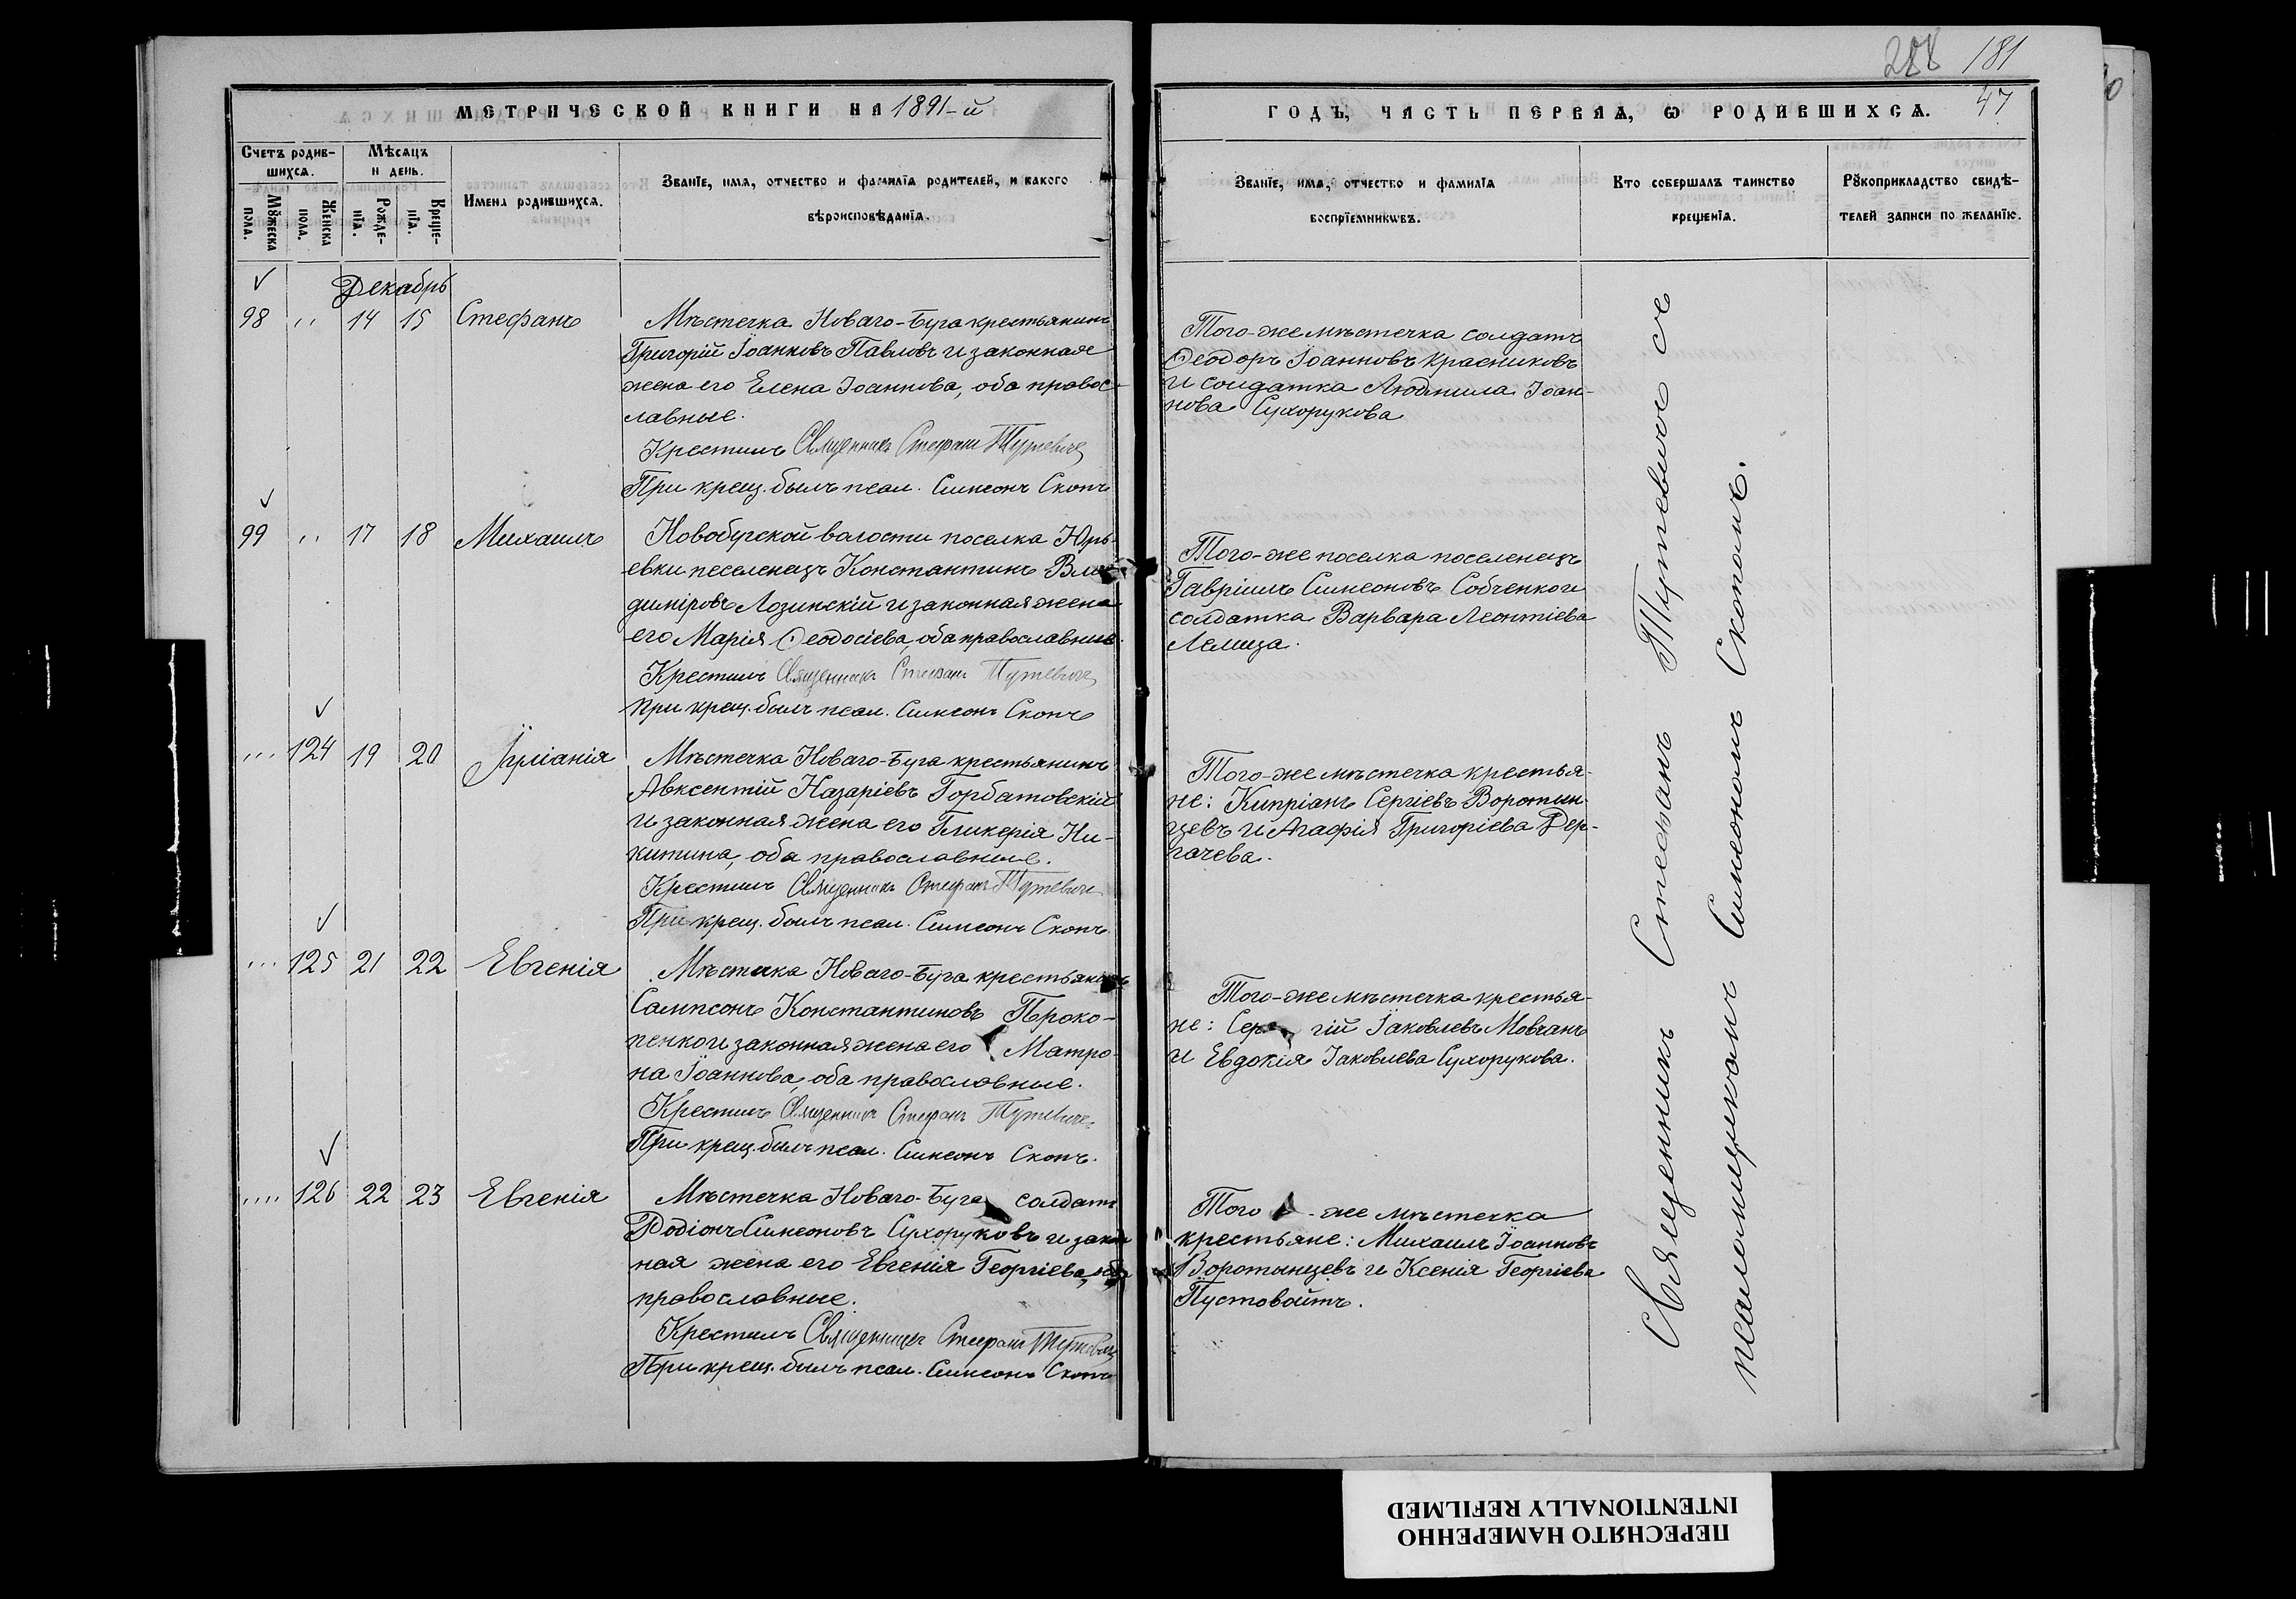 288 181
47
МЕТРИЧЕСКОЙ КНИГИ НА 1891-й
ГОДЪ, ЧАСТЬ ПЕРВАЯ, Ѡ РОДИВШИХСѦ.
Счетъ родив-
шихсѧ.
Мѣсѧцъ
и день.
Мꙋжеска
пола.
Женска
пола.
Рожде-
нїѧ.
Креще-
нїѧ.
Имена родившихсѧ.
Званїе, имѧ, отчество и фамилїѧ родителей, и какого
вѣроисповѣданїѧ.
Званїе, имѧ, отчество и фамилїѧ
воспрїемникѡвъ.
Кто совершалъ таинство
крещенїѧ.
Рꙋкоприкладство свидѣ-
телей записи по желанїю.
Декабрь
98 " 14 15 Стефанъ
Мѣстечка Новаго-Буга крестьянинъ
Григорій Іоанновъ Павловъ и законная
жена его Елена Іоаннова, оба правос-
лавные.
Крестилъ Священникъ Стефанъ Тутевичъ
При крещ. былъ псал. Симеонъ Скопъ
Того-же мѣстечка солдатъ
Ѳеодоръ Іоанновъ Красниковъ
и солдатка Людмила Іоан-
нова Сухорукова
99 " 17 18 Михаилъ
Новобугской волости поселка Юрь-
евки поселенецъ Константинъ Вла-
диміровъ Лозинскій и законная жена
его Марія Ѳеодосіева, оба православные.
Крестилъ Священникъ Стефанъ Тутевичъ
При крещ. былъ псал. Симеонъ Скопъ
Того-же поселка поселенецъ
Гавріилъ Симеоновъ Собченко и
солдатка Варвара Леонтіева
124 19 20 Іуліанія
Мѣстечка Новаго-Буга крестьянинъ
Авксентій Назаріевъ Горбатовскій
и законная жена его Гликерія Ни-
китина, оба православные.
Крестилъ Священникъ Стефанъ Тутевичъ
При крещ. былъ псал. Симеонъ Скопъ.
Того-же мѣстечка крестья-
не: Кипріанъ Сергіевъ Воротын-
цевъ и Агафія Григоріева Дер-
гачева.
125 21 22 Евгенія
Мѣстечка Новаго-Буга крестьянинъ
Сампсонъ Константиновъ Проко-
пенко и законная жена его Матро-
на Іоаннова, оба православные.
Крестилъ Священникъ Стефанъ Тутевичъ.
При крещ. былъ псал. Симеонъ Скопъ.
Того-же мѣстечка крестья-
не: Сергій Іаковлевъ Мовчанъ
и Евдокія Іаковлева Сухорукова.
126 22 23 Евгенія
Мѣстечка Новаго-Буга солдатъ
Родіонъ Симеоновъ Сухоруковъ и закон
ная жена его Евгенія Георгіева, оба
православные.
Крестилъ Священникъ Стефанъ Тутевичъ
При крещ. былъ псал. Симеонъ Скопъ
Того-же мѣстечка
крестьяне: Михаилъ Іоанновъ
Воротынцевъ и Ксенія Георгіева
Пустовойтъ.
Священникъ Стефанъ Тутевичъ съ
псаломщикомъ Симеономъ Скопомъ.
ПЕРЕСНЯТО НАМЕРЕННО
INTENTIONALLY REFILMED